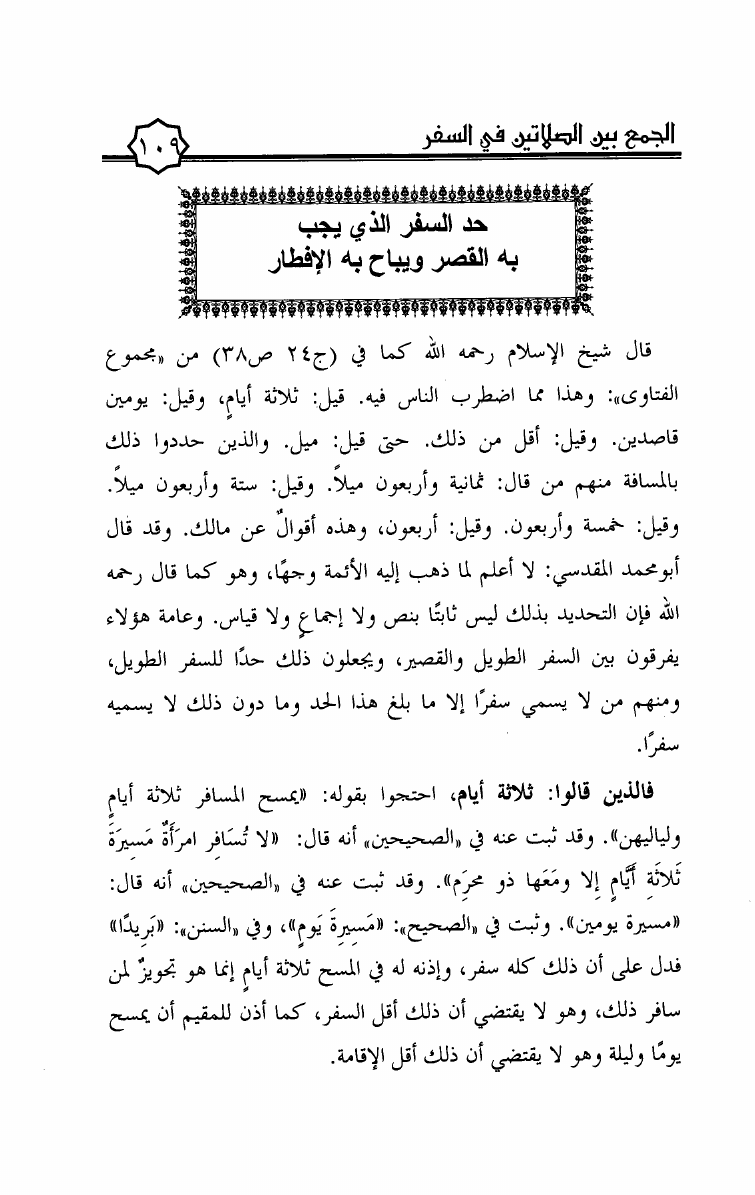 الجمع بين الصلاتين في السفر
١٠٩
حد السفر الذي يجب
به القصر ويباح به الإفطار
قال شيخ الإسلام رحمه الله كما في (ج٢٤ ص٣٨) من «مجموع
الفتاوى»: وهذا مما اضطرب الناس فيه. قيل: ثلاثة أيامٍ، وقيل: يومين
قاصدين. وقيل: أقل من ذلك. حتى قيل: ميل. والذين حددوا ذلك
بالمسافة منهم من قال: ثمانية وأربعون ميلاً. وقيل: ستة وأربعون ميلاً.
وقيل: خمسة وأربعون. وقيل: أربعون، وهذه أقوالٌ عن مالك. وقد قال
أبومحمد المقدسي: لا أعلم لما ذهب إليه الأئمة وجهًا، وهو كما قال رحمه
الله فإن التحديد بذلك ليس ثابتًا بنص ولا إجماعٍ ولا قياس. وعامة هؤلاء
يفرقون بين السفر الطويل والقصير، ويجعلون ذلك حدًا للسفر الطويل،
ومنهم من لا يسمي سفرًا إلا ما بلغ هذا الحد وما دون ذلك لا يسميه
سفرًا.
فالذين قالوا: ثلاثة أيام، احتجوا بقوله: «يمسح المسافر ثلاثة أيامٍ
ولياليهن». وقد ثبت عنه في «الصحيحين» أنه قال: «لا تُسَافِر امرَأَةٌ مَسِيرَةَ
ثَلاَثَةِ أَيَّامٍ إِلا ومَعَها ذو محرَمٍ». وقد ثبت عنه في «الصحيحين» أنه قال:
«مسيرة يومين». وثبت في «الصحيح»: «مَسِيرَةَ يَومٍ»، وفي «السنن»: «بَرِيدًا»
فدل على أن ذلك كله سفر، وإذنه له في المسح ثلاثة أيامٍ إنما هو تجويزٌ لمن
سافر ذلك، وهو لا يقتضي أن ذلك أقل السفر، كما أذن للمقيم أن يمسح
يومًا وليلة وهو لا يقتضي أن ذلك أقل الإقامة.